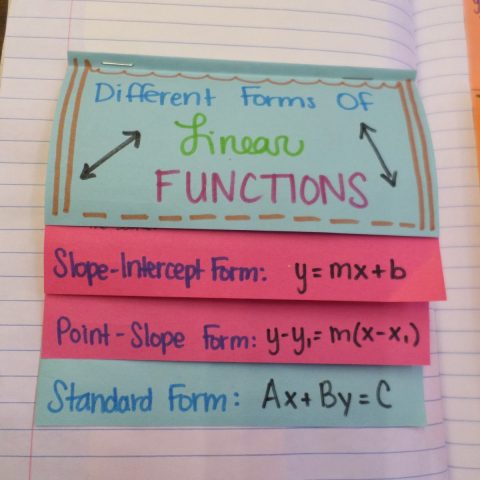 Different Forms Of
Linear
FUNCTIONS
Slope-Intercept Form: y=mx+b
Point-Slope Form: y-y₁=m(x-x₁)
Standard Form: Ax+By=C